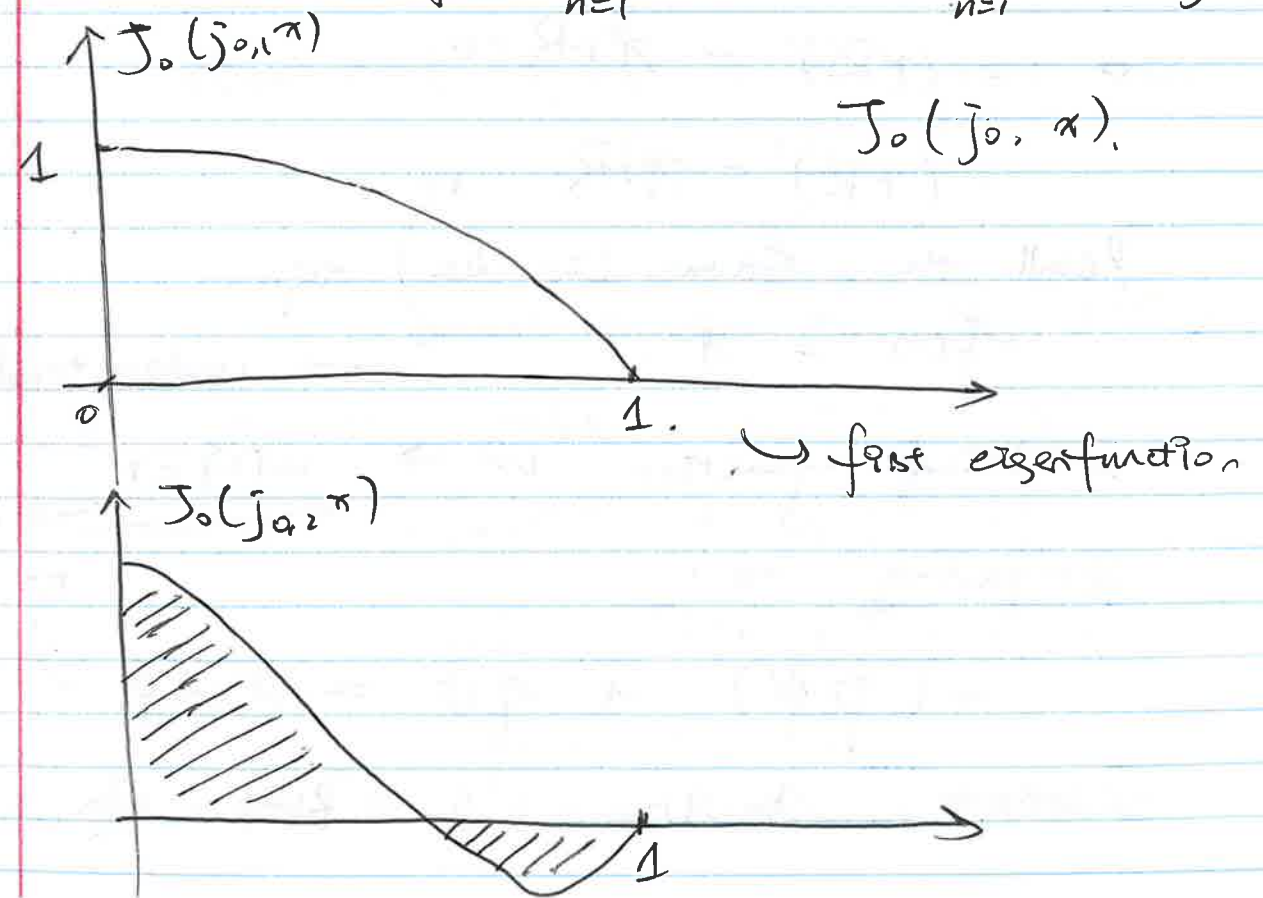 n=1 n=1
J₀(j₀,₁x)
J₀(j₀, x).
1
0 1.
↪ first eigenfunction
J₀(j₀,₂x)
1